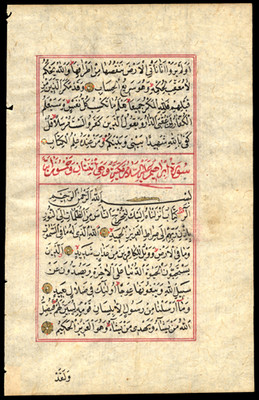 اولم يروا انا ناتي الارض ننقصها من اطرافها والله يحكم
لا معقب لحكمه وهو سريع الحساب وقد مكر الذين من
قبلهم فلله المكر جميعا يعلم ما تكسب كل نفس وسيعلم
الكفار لمن عقبى الدار ويقول الذين كفروا لست مرسلا قل
كفى بالله شهيدا بيني وبينكم ومن عنده علم الكتاب
سورة ابراهيم عليه السلام مكية وهي اثنتان وخمسون اية
بسم الله الرحمن الرحيم
الر كتاب انزلناه اليك لتخرج الناس من الظلمات الى النور
باذن ربهم الى صراط العزيز الحميد الله الذي له ما في السموات
وما في الارض وويل للكافرين من عذاب شديد الذين
يستحبون الحيوة الدنيا على الاخرة ويصدون عن
سبيل الله ويبغونها عوجا اولئك في ضلال بعيد
وما ارسلنا من رسول الا بلسان قومه ليبين لهم فيضل
الله من يشاء ويهدي من يشاء وهو العزيز الحكيم
ولقد